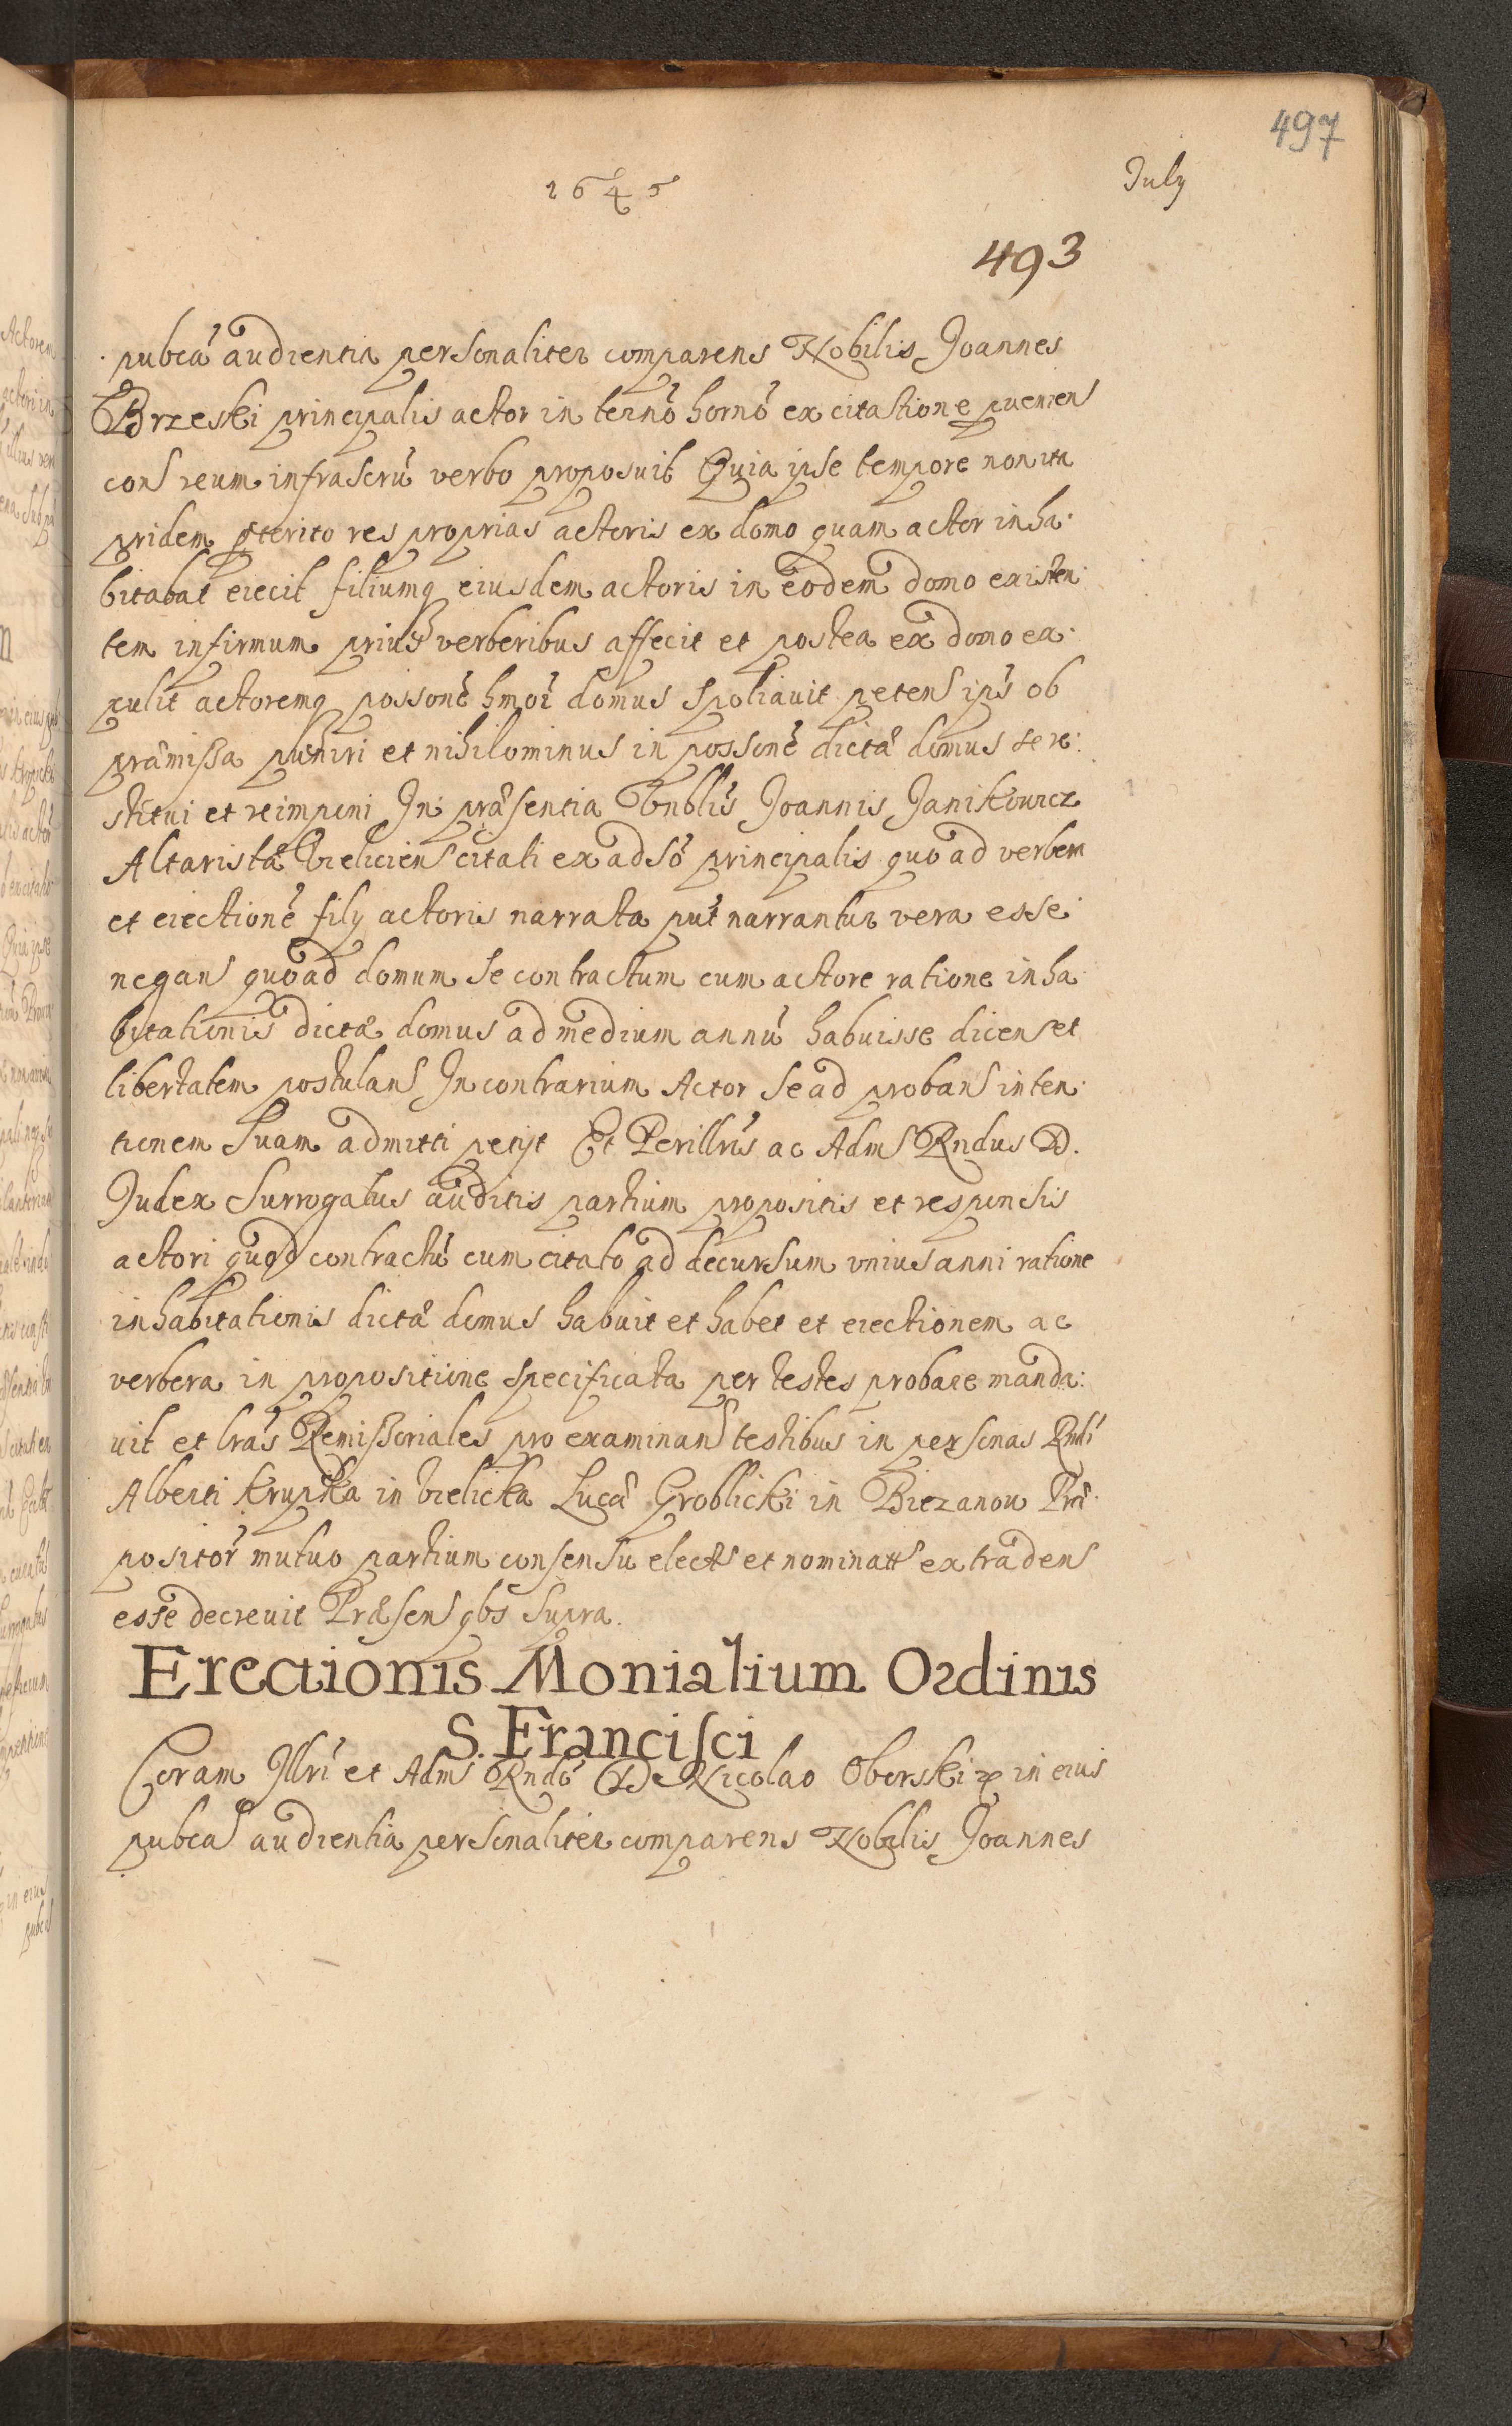 497
1645 July
493
pubca audientia personaliter comparens Nobilis Joannes
Brzeski principalis actor in termo horno ex citatione puenien
con reum infrascru verbo proposuit Quia ipse tempore non ita
pridem pterito res proprias actoris ex domo quam actor inha:
bitabat eiecit filiumq eiusdem actoris in eodem domo existen:
tem infirmum prius verberibus affecit et postea ex domo ex:
pulit actoremq possone hmoi domus spoliauit petens ips ob
præmissa puniri et nihilominus in possone dictæ domus se re:
stitui et reimponi In præsentia Vnblis Joannis Janikowicz
Altaristæ Vieliciens citati ex adso principalis quo ad verbera
et eiectione filij actoris narrata put narrantur vera esse
negans quoad domum se contractum cum actore ratione inha
bitationis dictæ domus ad medium annu habuisse dicens et
libertatem postulans In contrarium Actor se ad proban inten:
tionem suam admitti petijt Et Perillris ac Adm Rndus D.
Judex Surrogatus auditis partium propositis et responsis
actori quod contractu cum citato ad decursum vnius anni ratione
inhabitationis dictæ domus habuit et habet et eiectionem ac
verbera in propositione specificata per testes probare manda:
uit et lras Remissoriales pro examinan testibus in personas Rndi
Alberti Krupka in Vielicka Lucæ Groblicki in Biezanow Præ:
positor mutuo partium consensu elect et nominat extraden
esse decreuit Præsen qbs supra.
Erectionis Monialium Ordinis
S. Francisci
Coram Illri et Adm Rndo D Nicolao Oberski in eius
pubca audientia personaliter comparens Nobilis Joannes